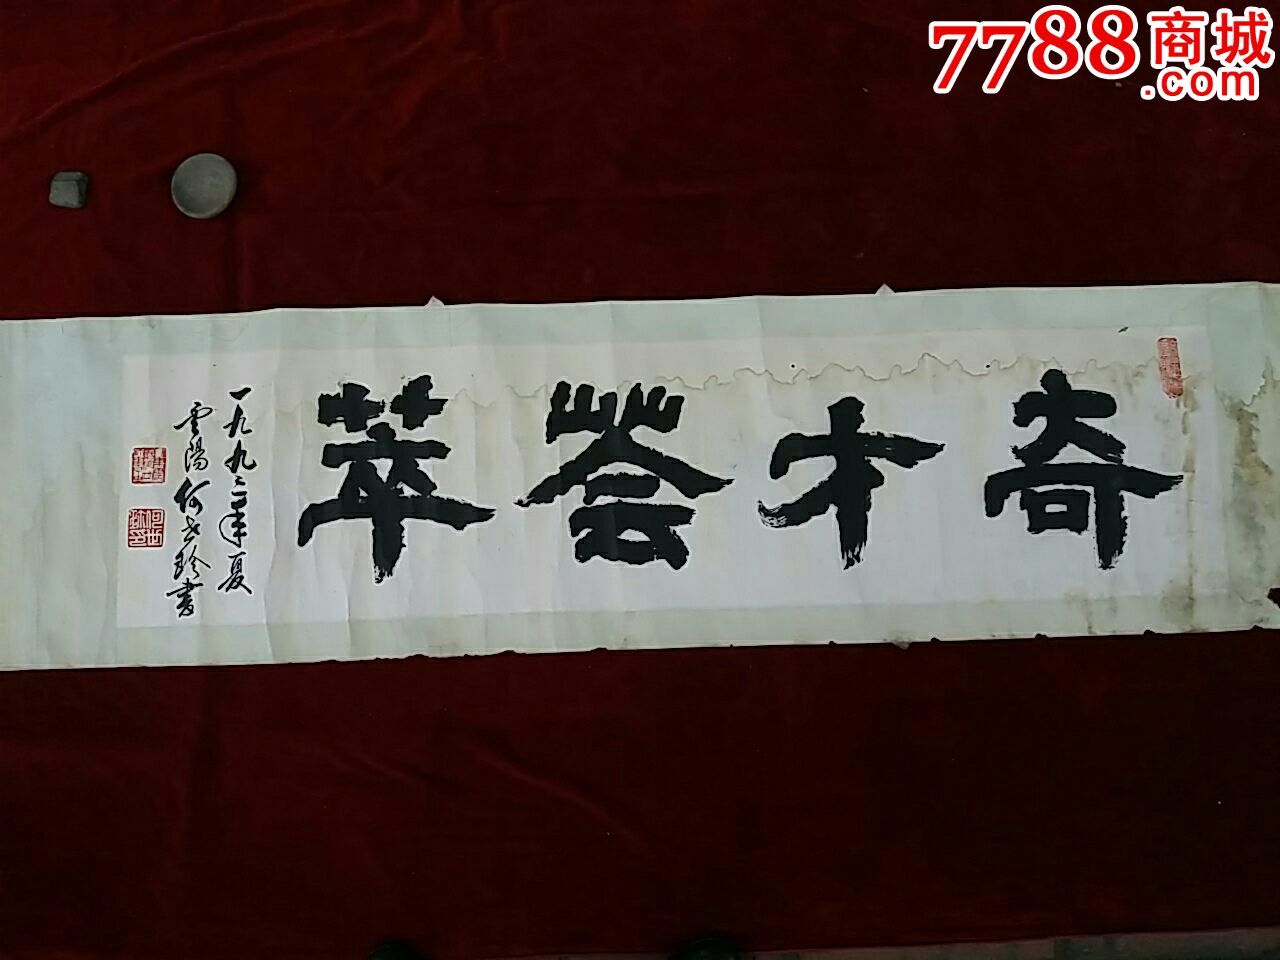 7788商城
.com
奇才荟萃
一九九二年夏
云阳何世珍書